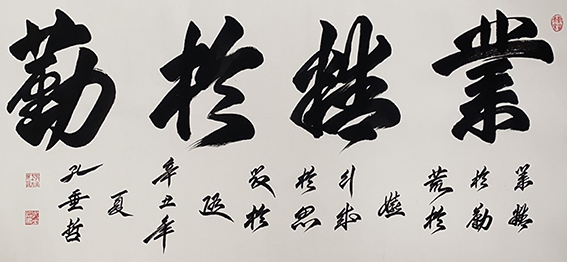 業精於勤
業精
於勤
荒於
嬉
行成
於思
毀於
随
辛丑年
夏
孔垂哲